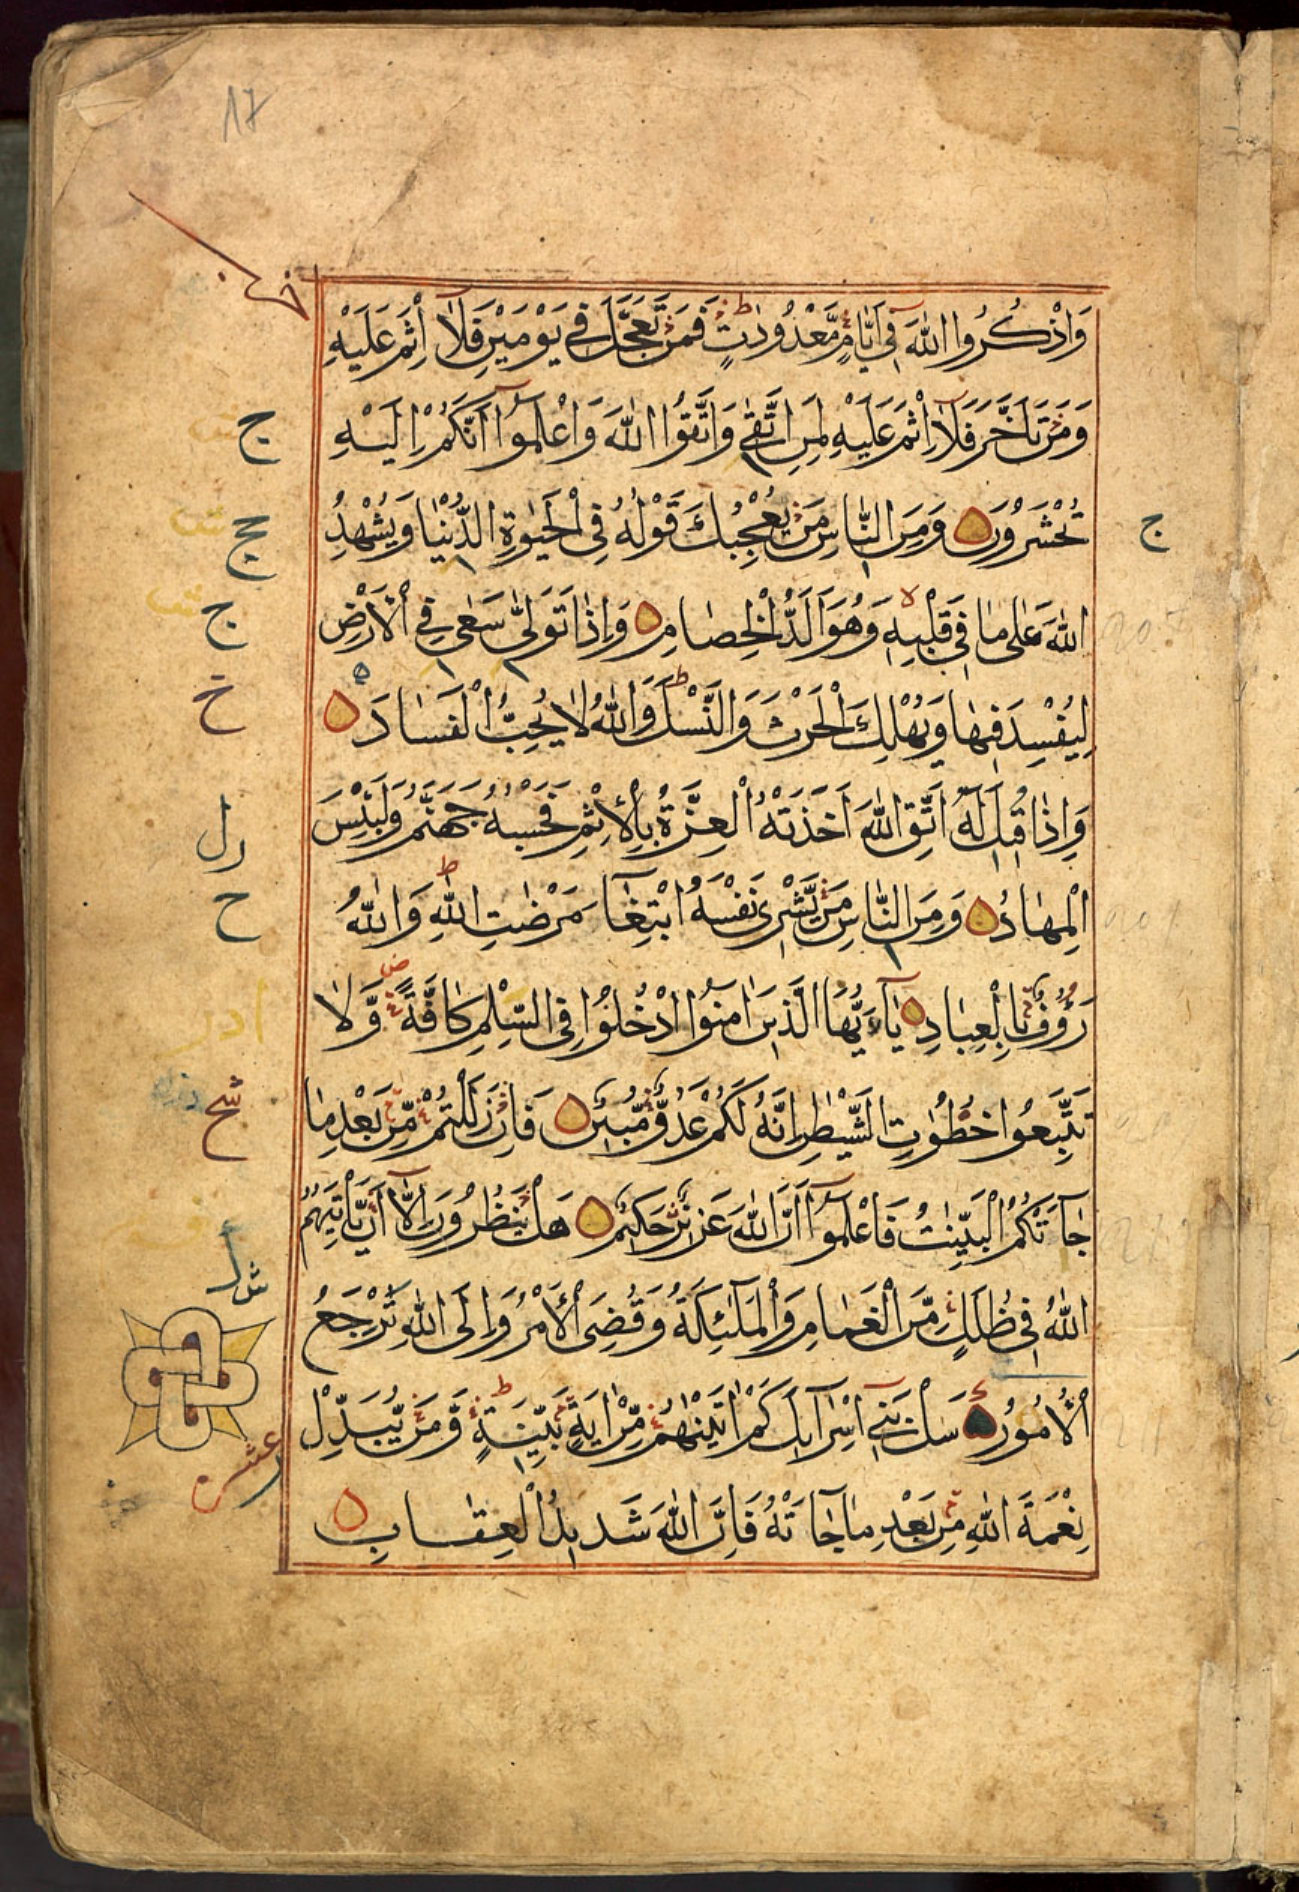 17
وَاذْكُرُوا اللّٰهَ فِي اَيَّامٍ مَّعْدُودٰتٍ ط فَمَنْ تَعَجَّلَ فِي يَوْمَيْنِ فَلَآ اِثْمَ عَلَيْهِ
وَمَنْ تَاَخَّرَ فَلَآ اِثْمَ عَلَيْهِ لِمَنِ اتَّقٰى وَاتَّقُوا اللّٰهَ وَاعْلَمُوٓا اَنَّكُمْ اِلَيْهِ
ج
تُحْشَرُونَ وَمِنَ النَّاسِ مَنْ يُعْجِبُكَ قَوْلُهُ فِي الْحَيٰوةِ الدُّنْيَا وَيُشْهِدُ
ج
ج
اللّٰهَ عَلٰى مَا فِي قَلْبِهِ وَهُوَ اَلَدُّ الْخِصَامِ وَاِذَا تَوَلّٰى سَعٰى فِي الْاَرْضِ
ج
لِيُفْسِدَ فِيهَا وَيُهْلِكَ الْحَرْثَ وَالنَّسْلَ ط وَاللّٰهُ لَا يُحِبُّ الْفَسَادَ
خ
وَاِذَا قِيلَ لَهُ اتَّقِ اللّٰهَ اَخَذَتْهُ الْعِزَّةُ بِالْاِثْمِ فَحَسْبُهُ جَهَنَّمُ وَلَبِئْسَ
الْمِهَادُ وَمِنَ النَّاسِ مَنْ يَّشْرِى نَفْسَهُ ابْتِغَآءَ مَرْضَاتِ اللّٰهِ ط وَاللّٰهُ
ح
رَؤُوفٌ بِالْعِبَادِ يَآ اَيُّهَا الَّذِينَ اٰمَنُوا ادْخُلُوا فِي السِّلْمِ كَافَّةً وَّلَا
تَتَّبِعُوا خُطُوٰتِ الشَّيْطٰنِ اِنَّهُ لَكُمْ عَدُوٌّ مُّبِينٌ فَاِنْ زَلَلْتُمْ مِّنْ بَعْدِ مَا
جَآءَتْكُمُ الْبَيِّنٰتُ فَاعْلَمُوٓا اَنَّ اللّٰهَ عَزِيزٌ حَكِيمٌ هَلْ يَنْظُرُونَ اِلَّآ اَنْ يَّاْتِيَهُمُ
اللّٰهُ فِي ظُلَلٍ مِّنَ الْغَمَامِ وَالْمَلٰٓئِكَةُ وَقُضِيَ الْاَمْرُ وَاِلَى اللّٰهِ تُرْجَعُ
الْاُمُورُ سَلْ بَنِيٓ اِسْرَآئِلَ كَمْ اٰتَيْنٰهُمْ مِّنْ اٰيَةٍ بَيِّنَةٍ ط وَّمَنْ يُّبَدِّلْ
عشر
نِعْمَةَ اللّٰهِ مِنْ بَعْدِ مَا جَآءَتْهُ فَاِنَّ اللّٰهَ شَدِيدُ الْعِقَابِ